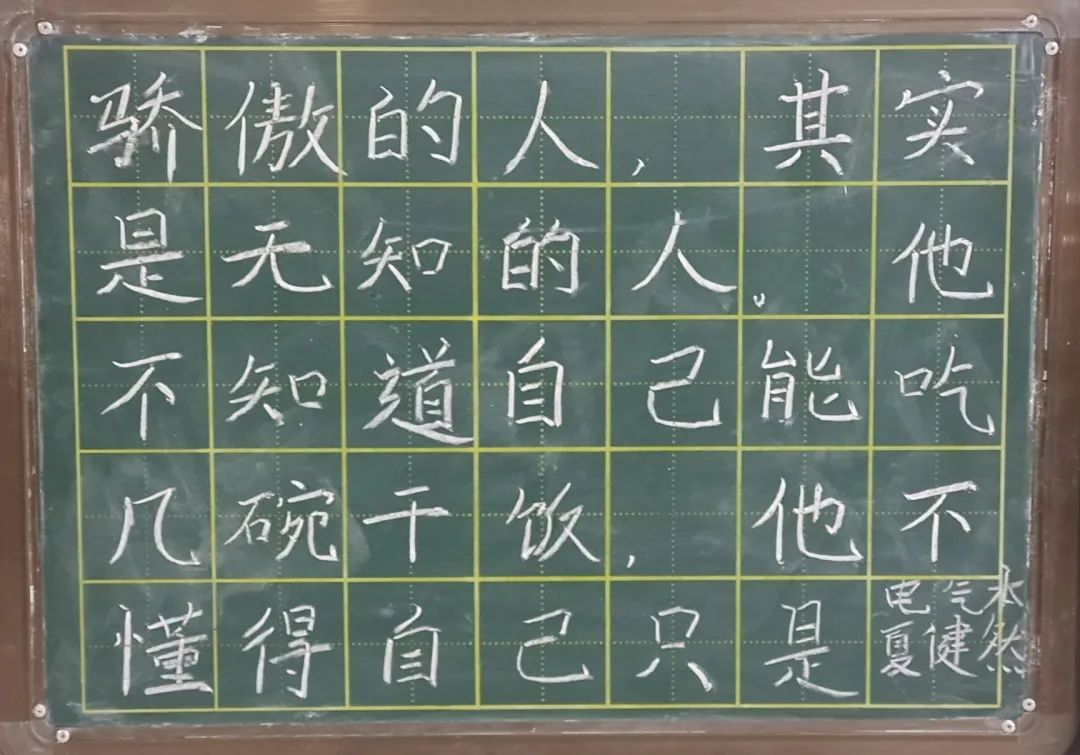 骄傲的人，其实
是无知的人。他
不知道自己能吃
几碗干饭，他不
懂得自己只是
电气木
夏健然